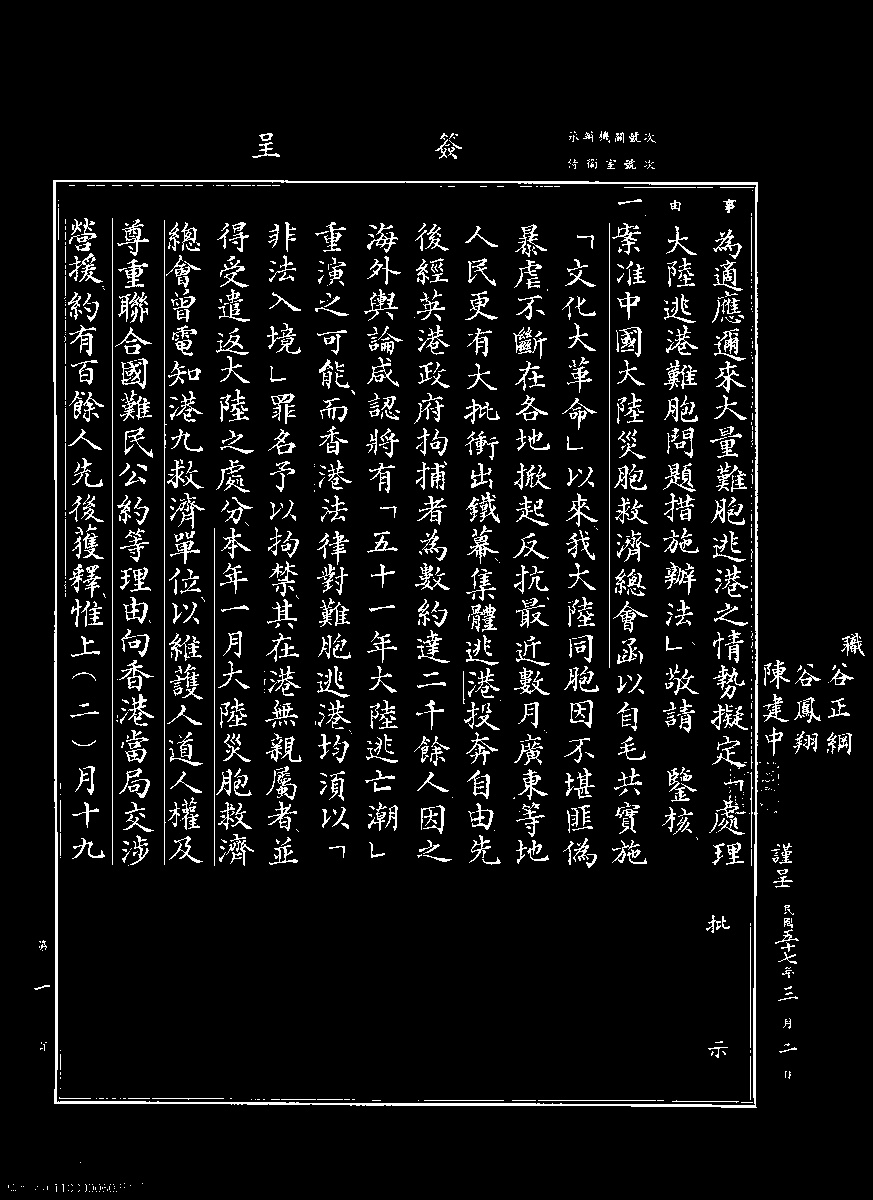 簽呈
承辦機關號次
侍衛室號次
職
谷正綱
谷鳳翔
陳建中
謹呈
民國五十七年三月二日
事由
為適應邇來大量難胞逃港之情勢擬定「處理
大陸逃港難胞問題措施辦法」敬請　鑒核
一案准中國大陸災胞救濟總會函以自毛共實施
「文化大革命」以來我大陸同胞因不堪匪偽
暴虐不斷在各地掀起反抗最近數月廣東等地
人民更有大批衝出鐵幕集體逃港投奔自由先
後經英港政府拘捕者為數約達二千餘人因之
海外輿論咸認將有「五十一年大陸逃亡潮」
重演之可能而香港法律對難胞逃港均須以「
非法入境」罪名予以拘禁其在港無親屬者並
得受遣返大陸之處分本年一月大陸災胞救濟
總會曾電知港九救濟單位以維護人道人權及
尊重聯合國難民公約等理由向香港當局交涉
營援約有百餘人先後獲釋惟上(二)月十九
批示
第一頁